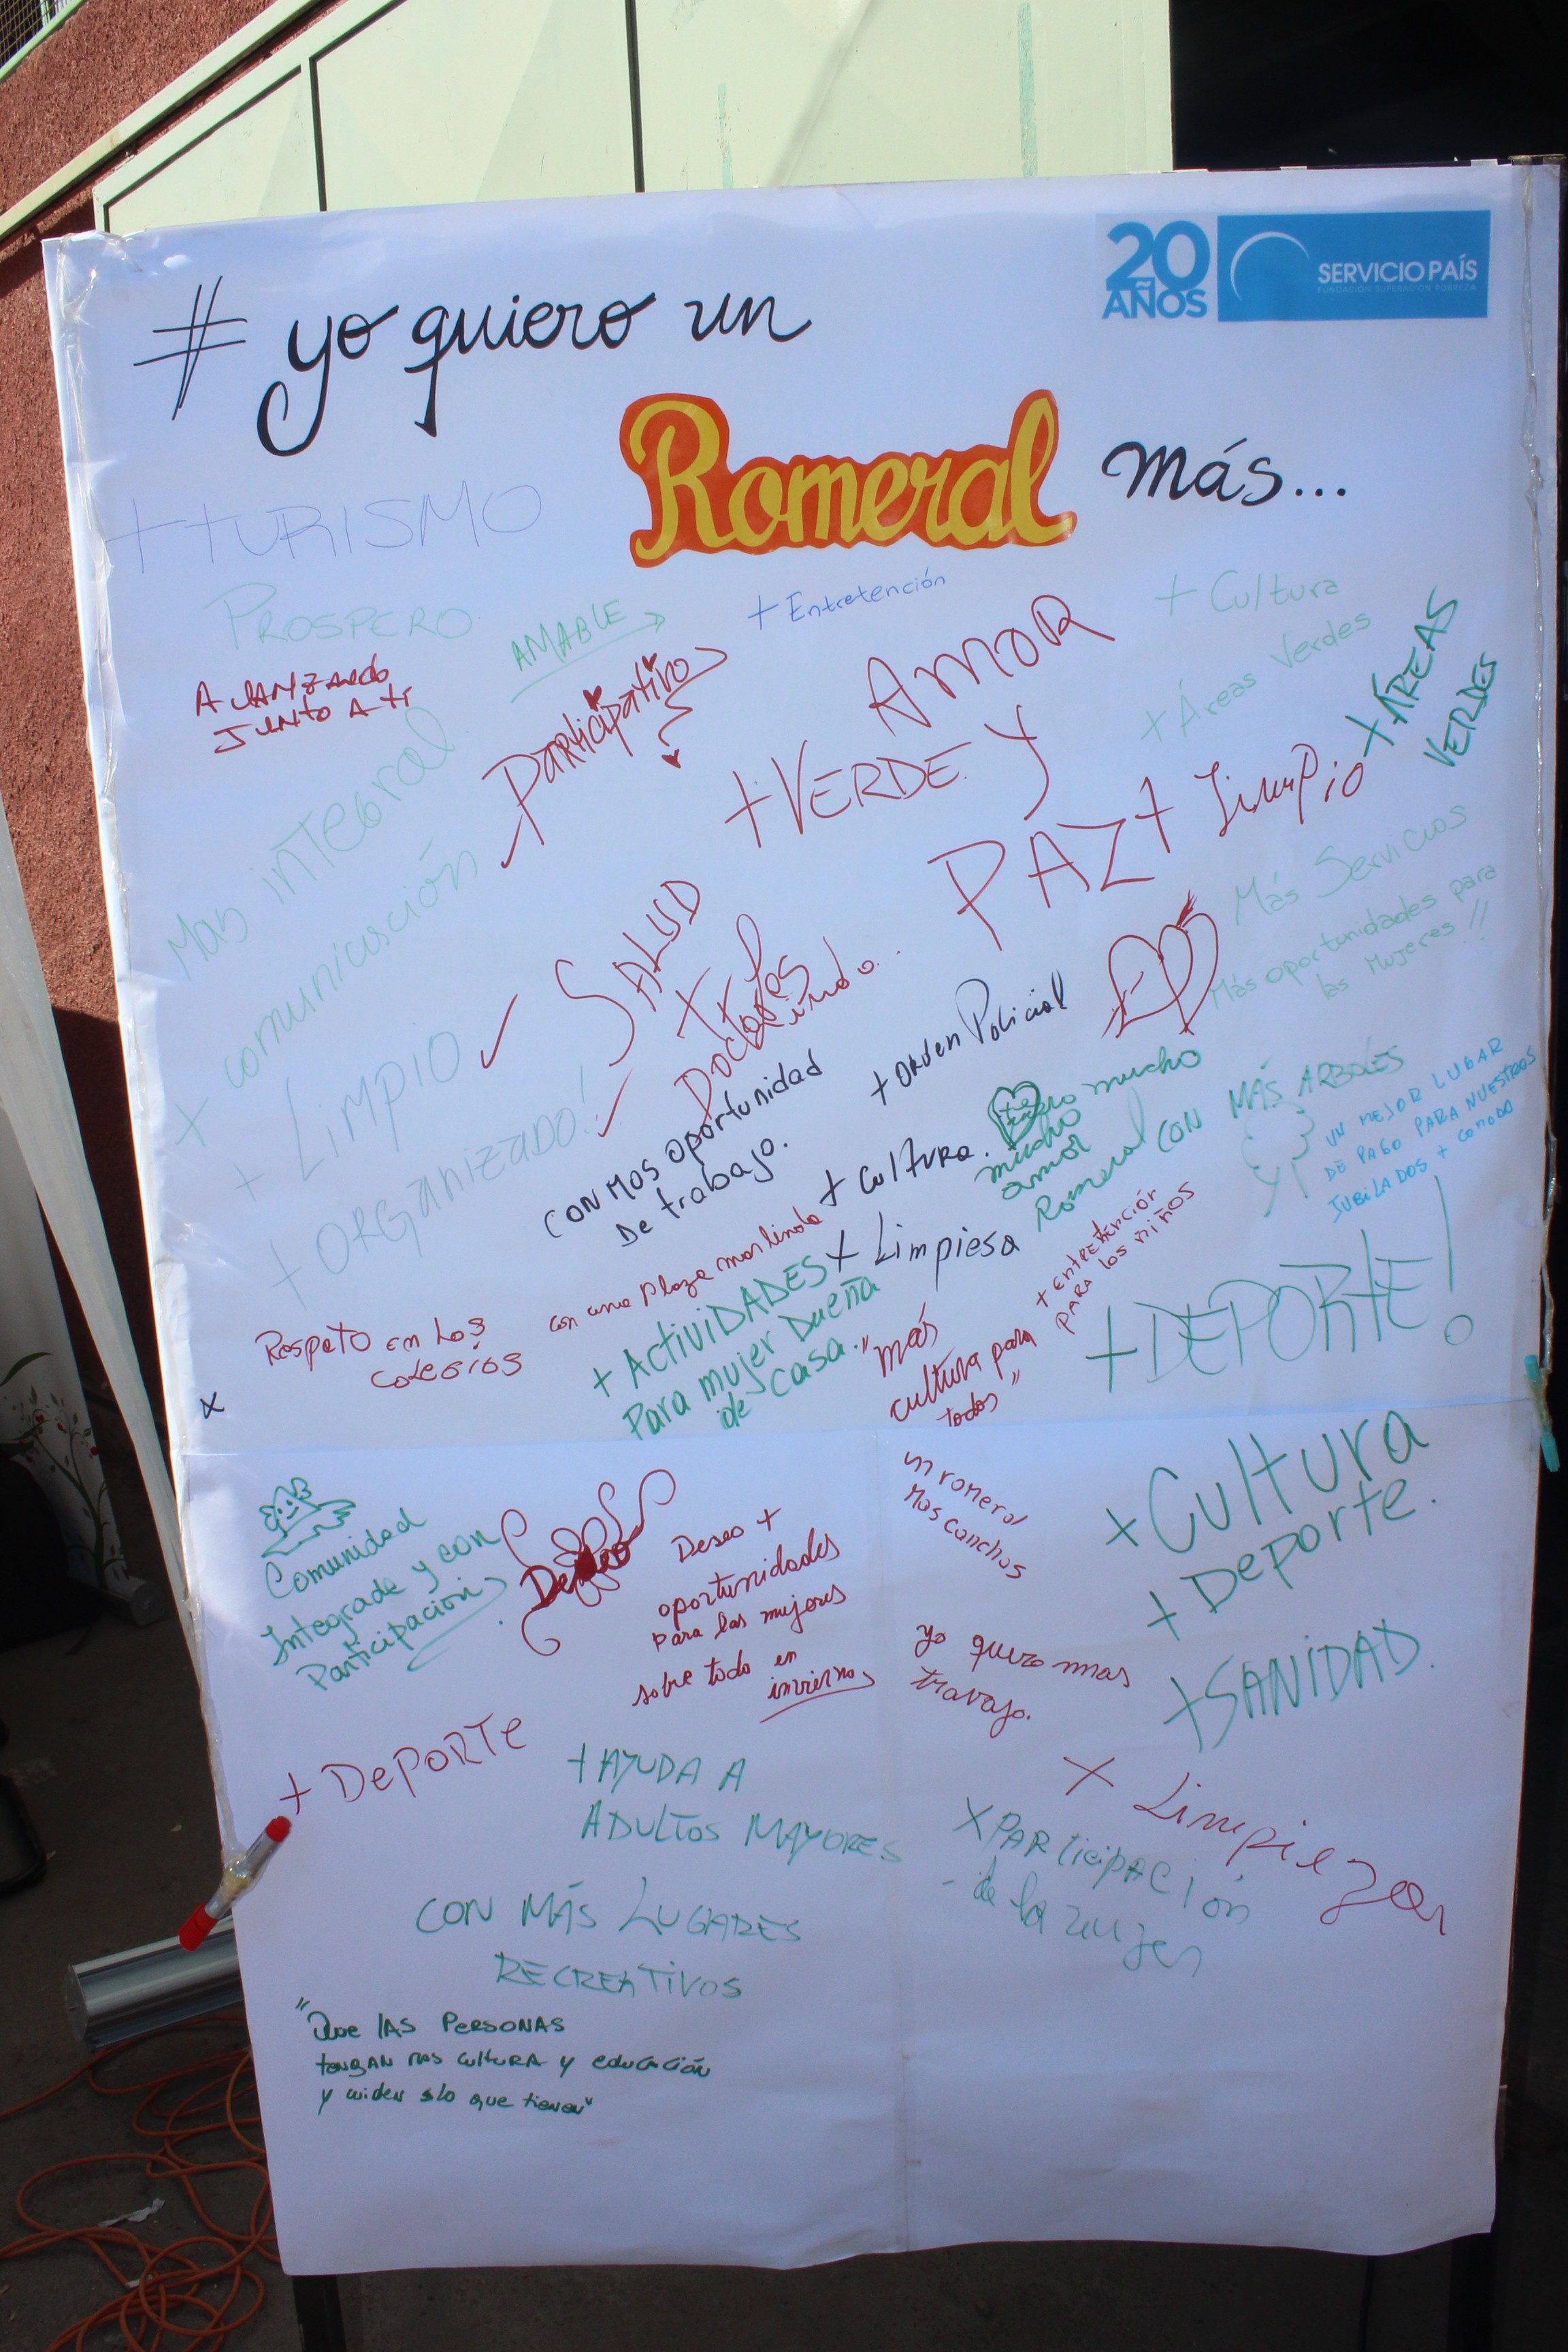 20
AÑOS
SERVICIO PAÍS
FUNDACIÓN SUPERACIÓN POBREZA
# yo quiero un
Romeral más...
+ TURISMO
PROSPERO
AMABLE
+ Entretención
+ Cultura
AVANZANDO
JUNTO A TI
Participativo
AMOR
+ Áreas Verdes
+ ÁREAS
VERDES
+ VERDE Y
PAZ + Limpio
Mas inTEGral
+ comunicación
SALUD
Doctores
Más Servicios
Más oportunidades para
las Mujeres !!
+ LIMPIO
+ ORGANIZADO!
+ orden Policial
CON MAS oportunidad
De trabajo.
+ cultura.
mucho
mucho
amor
Romeral CON MÁS ARBOLES
UN MEJOR LUGAR
DE PAGO PARA NUESTROS
JUBILADOS + COMODO
con una plaza mas linda
+ Limpiesa
+ ENTRETENCIÓN
PARA LOS NIÑOS
Respeto en Los
coLeGios
+ ACTIVIDADES
Para mujer Dueña
de casa.
"más
cultura para
todos"
+ DEPORTE!
x
Comunidad
Integrada y con
Participación
Deseo +
oportunidades
para las mujeres
sobre todo en
invierno
un romeral
mas canchas
+ Cultura
+ Deporte.
+ SANIDAD.
yo quero mas
travajo.
+ DePORTe
+ AYUDA A
ADULTOS MAYORES
X Limpieza
X PARticipación
- de la mujer
CON MÁS LUGARES
RECREATIVOS
"Que LAS PERSONAS
tengan mas cultura y educación
y cuiden + lo que tienen"